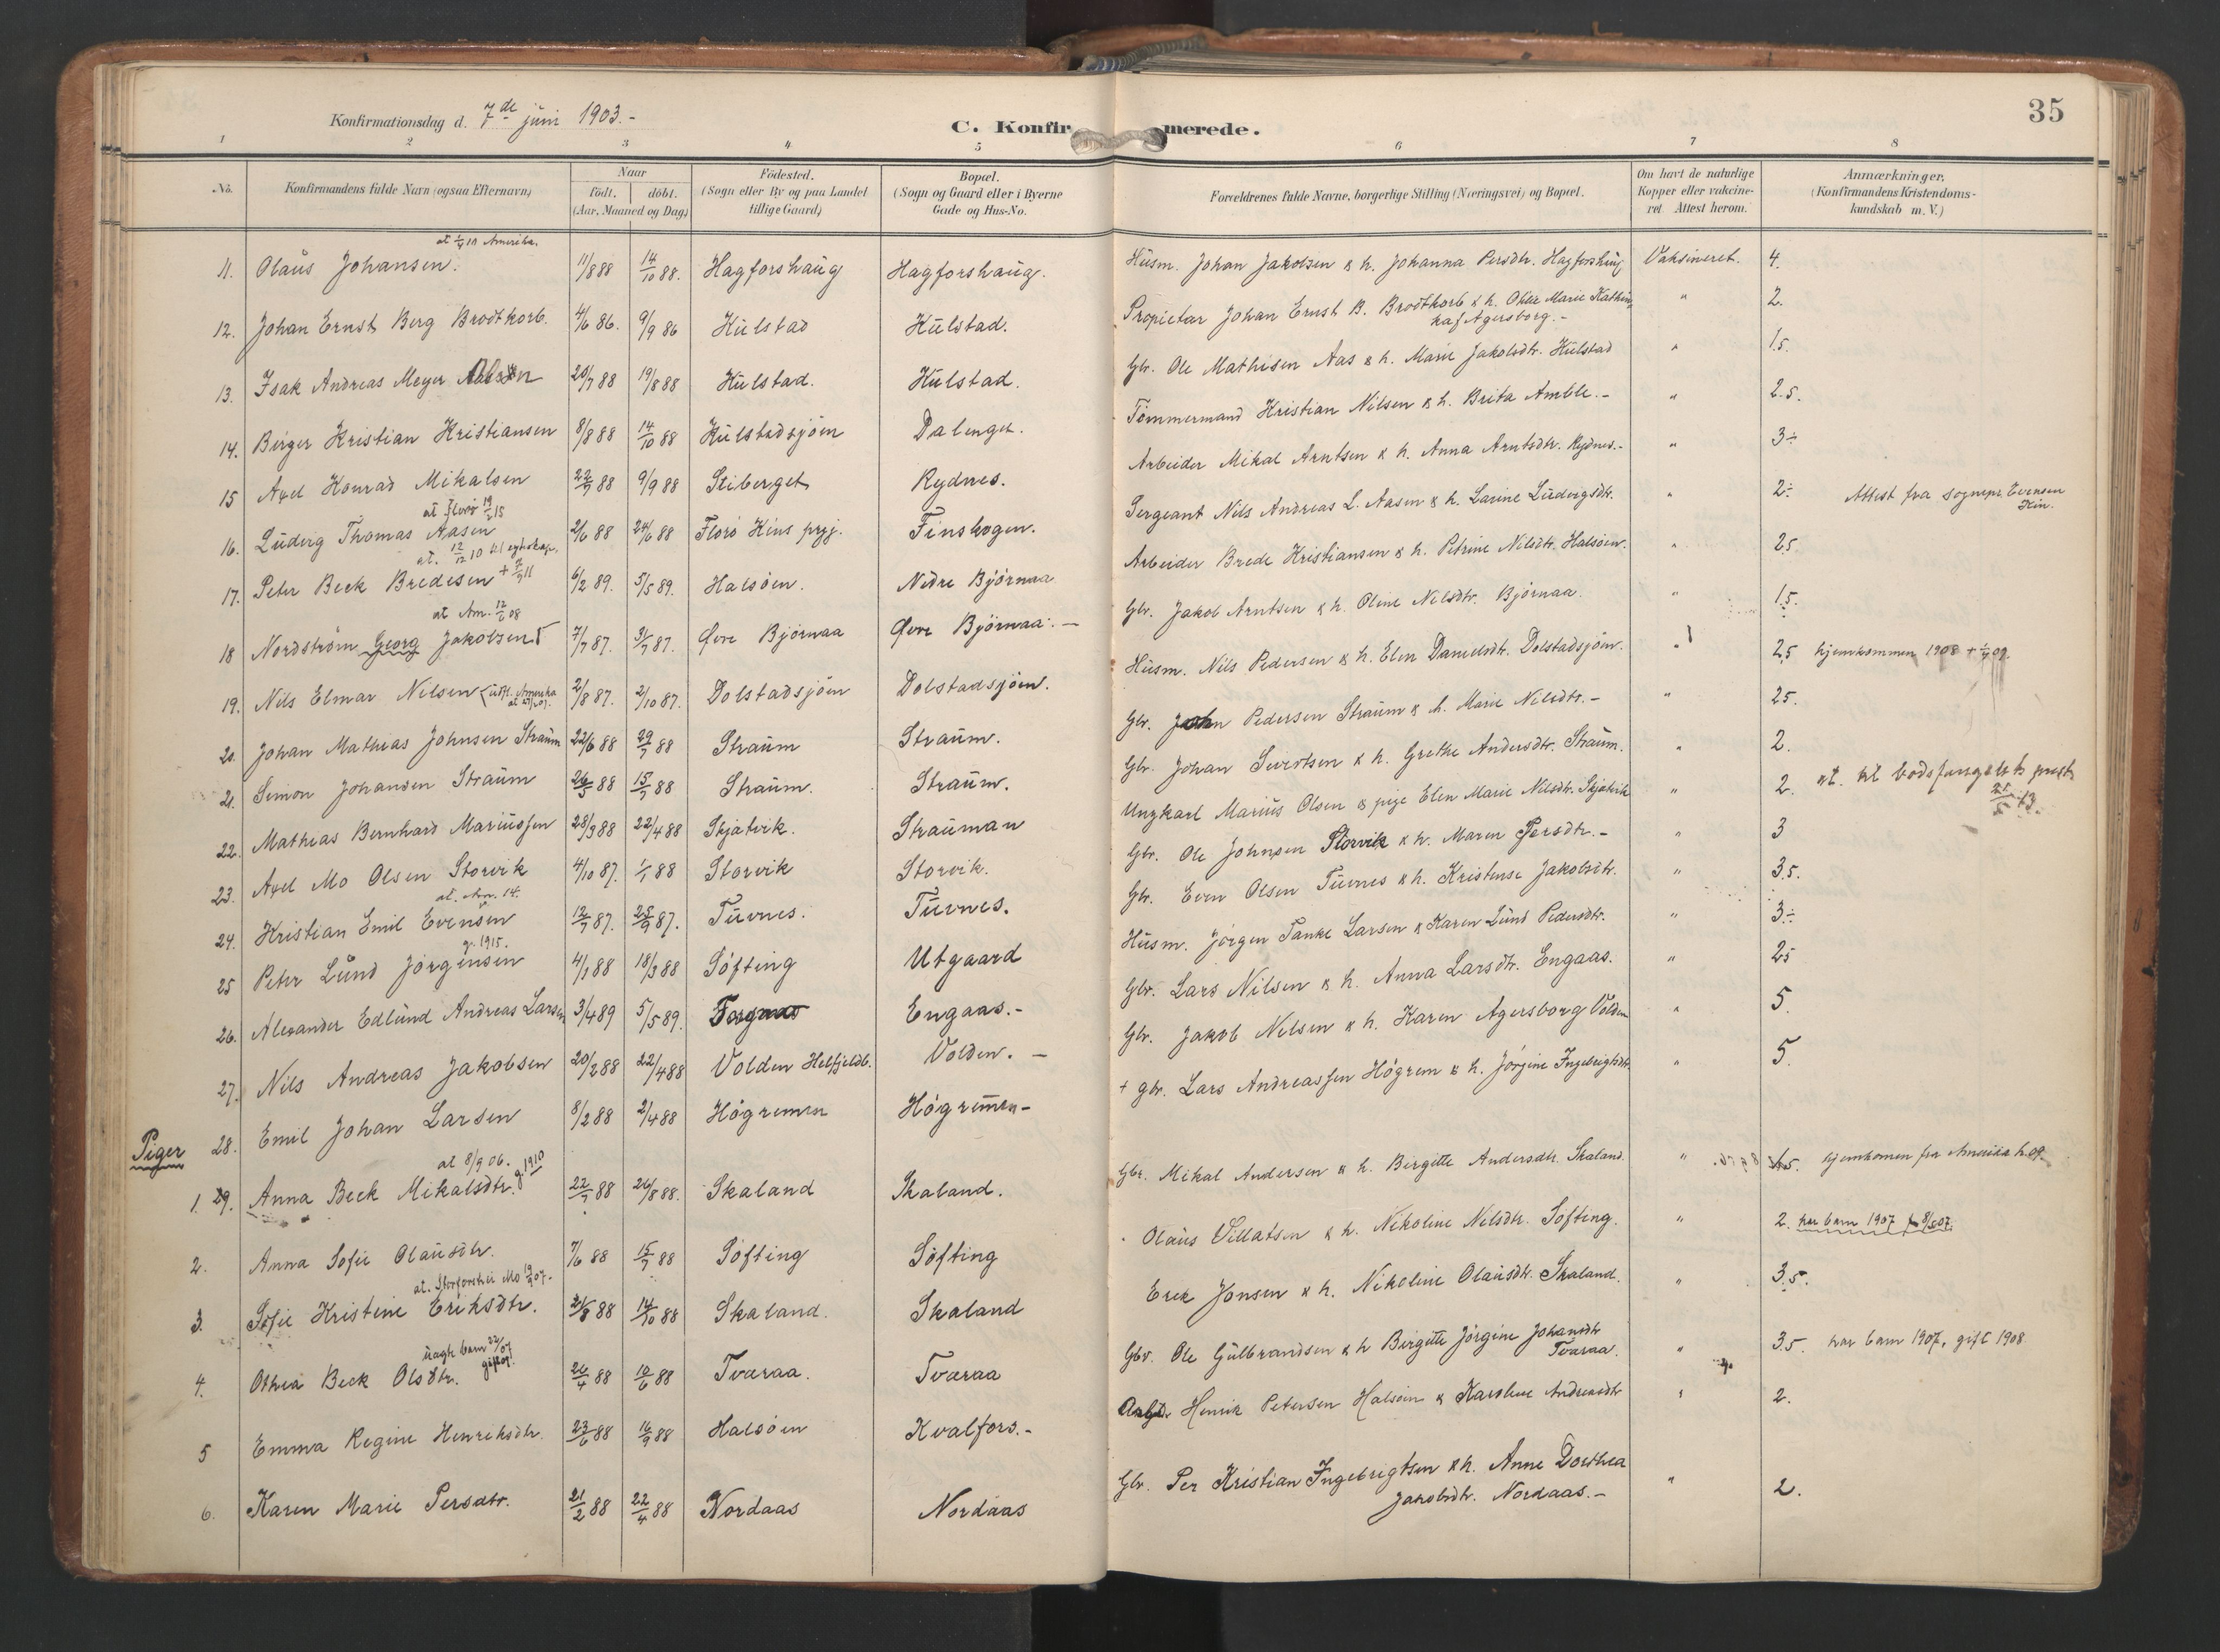 Konfirmationsdag d. 7de juni 1903.-
C. Konfirmerede.
35
1 2 3 4 5 6 7 8
No.
Konfirmandens fulde Navn (ogsaa Efternavn)
Naar
født. døbt.
(Aar, Maaned og Dag)
Fødested.
(Sogn eller By og paa Landet
tillige Gaard)
Bopæl.
(Sogn og Gaard eller i Byerne
Gade og Hus-No.
Forældrenes fulde Navne, borgerlige Stilling (Næringsvei) og Bopæl.
Om havt de naturlige
Kopper eller vakcine-
ret. Attest herom.
Anmærkninger,
(Konfirmandens Kristendoms-
kundskab m. V.)
at Amerika.
11. Olaus Johansen. 11/8 88 14/10 88. Hagforshaug Hagforshaug. Husm. Johan Jakobsen & h. Johanna Persdtr. Hagforshaug Vaksineret. 4.
12. Johan Ernst Berg Brodtkorb. 4/6 86. 9/9 86 Kulstad Kulstad. Propietær Johan Ernst B. Brodtkorb & h. Marie Kathin " 2.
Agersborg.-
13. Isak Andreas Meyer Olsen 20/7 88 19/8 88 Kulstad. Kulstad. Gbr. Ole Mathisen Aas & h. Marie Jakobsdtr. Kulstad " 1.5.
14. Birger Kristian Kristiansen 8/8 88 14/10 88 Kulstadsjøen Dalenget. Tømmermand Kristian Nilsen & h. Brita Amble.- " 2.5.
15 Axel Konrad Mikalsen 22/7 88 9/9 88 Stiberget Rydnes. Arbeider Mikal Arntsen & h. Anna Arntsdtr. Rydnes.- " 3÷
at Florø 19/2 15
16. Luderg Thomas Aasen 2/6 88 24/6 88 Florø Kins prgj. Finskogen. Sergeant Nils Andreas L. Aasen & h. Larine Ludergsdtr. " 2÷ Attest fra sognepr. Evensen
Kin.
at. 12/12 10
17. Peter Beck Bredesen 6/2 89. 5/5 89. Halsøen. Nedre Bjørnaa Arbeider Brede Kristiansen & h. Petrine Nilsdtr. Halsøen. " 2.5
at Am. 12/6 08
18 Nordstrøm Georg Jakobsen 7/7 87. 3/7 87. Øvre Bjørnaa Øvre Bjørnaa.- Gbr. Jakob Arntsen & h. Oline Nilsdtr. Bjørnaa. " 1.5.
19. Nils Elmar Nilsen (utfl. Amerika 2/8 87. 2/10 87. Dolstadsjøen Dolstadsjøen. Husm. Nils Pedersen & h. Elen Danielsdtr. Dolstadsjøen. " 2,5 hjemkommen 1908
20. Johan Mathias Johnsen Straum 22/6 88 29/7 88 Straum Straum. Gbr. John Pedersen Straum & h. Marie Nilsdtr.- " 2.5.
21. Simon Johansen Straum 26/5 88 15/7 88 Straum. Straum. Gbr. Johan Sivertsen & h. Grethe Andersdtr. Straum. " 2.
22. Mathias Bernhard Mariussen 28/3 88 22/4 88 Skjatvik. Strauman Ungkarl Marius Olsen & pige Elen Marie Nilsdtr. Skjatvik " 2. at. til bodsfængslets prest
23. Axel Mo Olsen Storvik 4/10 87. 1/1 88 Storvik Storvik. Gbr. Ole Johnsen Storvik & h. Maren Persdtr.- " 3
at. Am. 14.
24. Kristian Emil Evensen 12/7 87. 25/9 87. Tuvnes. Tuvnes. Gbr. Even Olsen Tuvnes & h. Kristense Jakobsdtr. " 3.5.
g. 1915.
25 Peter Lund Jørgensen 4/1 88 18/3 88 Søfting Utgaard Husm. Jørgen Tanke Larsen & Karen Lund Pedersdtr. " 3÷
26. Alexander Edlund Andreas Larsen 3/4 89 5/5 89. Engaas.- Gbr. Lars Nilsen & h. Anna Larsdtr. Engaas. " 2.5
27. Nils Andreas Jakobsen 20/2 88 22/4 88 Volden Helfjeldb. Volden.- Gbr. Jakob Nilsen & h. Karen Agersborg Volden " 5.
28. Emil Johan Larsen 8/2 88 2/4 88 Høgremen Høgremen- + gbr. Lars Andreassen Høgrem & h. Jørgine Ingebrigtsdtr. " 5.
Piger
at 8/9 06. g. 1910
1. 29. Anna Beck Mikalsdtr. 22/7 88 26/8 88. Skaland Skaland. Gbr. Mikal Andersen & h. Birgitte Andersdtr. Skaland. " 1.5. hjemkomen fra Amerika
2. Anna Sofie Olausdtr. 7/6 88 15/7 88 Søfting Søfting Olaus Sillatsen & h. Nikoline Nilsdtr. Søfting. " 2. har barn 1907
at. Storforshei Mo 19/2 07.-
3. Sofie Kristine Eriksdtr. 21/8 88 14/10 88 Skaland. Skaland Erik Jonsen & h. Nikoline Olausdtr. Skaland. " 3.5.
uagte barn 22/07
4. Othea Beck Olsdtr. 26/4 88 10/6 88 Tværaa. Tværaa Gbr. Ole Gulbrandsen & h Birgitte Jørgine Johansdtr " 3.5. har barn 1907, gift 1908
Tværaa.
5 Emma Regine Henriksdtr. 23/6 88 16/9 88 Halsøen Kvalfors.- Henrik Petersen Halsøen & Karoline Andreasdtr " 2.
6. Karen Marie Persdtr. 21/2 88 22/4 88 Nordaas Nordaas Gbr. Per Kristian Ingebrigtsen & h. Anne Dorthea " 2.
Jakobsdtr. Nordaas.-